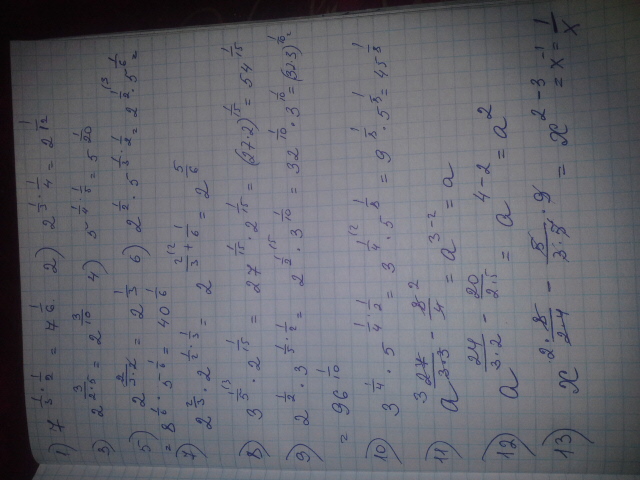 1) 7^{1/3 · 1/2} = 7^{1/6} 2) 2^{1/3 · 1/4} = 2^{1/12}
3) 2^{3/(2·5)} = 2^{3/10} 4) 5^{1/4 · 1/5} = 5^{1/20}
5) 2^{2/(3·2)} = 2^{1/3} 6) 2^{1/2} · 5^{1/3 · 1/2} = 2^{1/2} · 5^{1/6} =
= 8^{1/6} · 5^{1/6} = 40^{1/6}
7) 2^{2/3} · 2^{1/2 · 1/3} = 2^{2/3 + 1/6} = 2^{5/6}
8) 3^{1/5} · 2^{1/15} = 27^{1/15} · 2^{1/15} = (27·2)^{1/15} = 54^{1/15}
9) 2^{1/2} · 3^{1/5 · 1/2} = 2^{1/2} · 3^{1/10} = 32^{1/10} · 3^{1/10} = (32·3)^{1/10} =
= 96^{1/10}
10) 3^{1/4} · 5^{1/4 · 1/2} = 3^{1/4} · 5^{1/8} = 9^{1/8} · 5^{1/8} = 45^{1/8}
11) a^{27/(3·3) - 8/4} = a^{3-2} = a
12) a^{24/(3·2) - 20/(2·5)} = a^{4-2} = a^2
13) = x^{2-3} = x^{-1} = 1/x